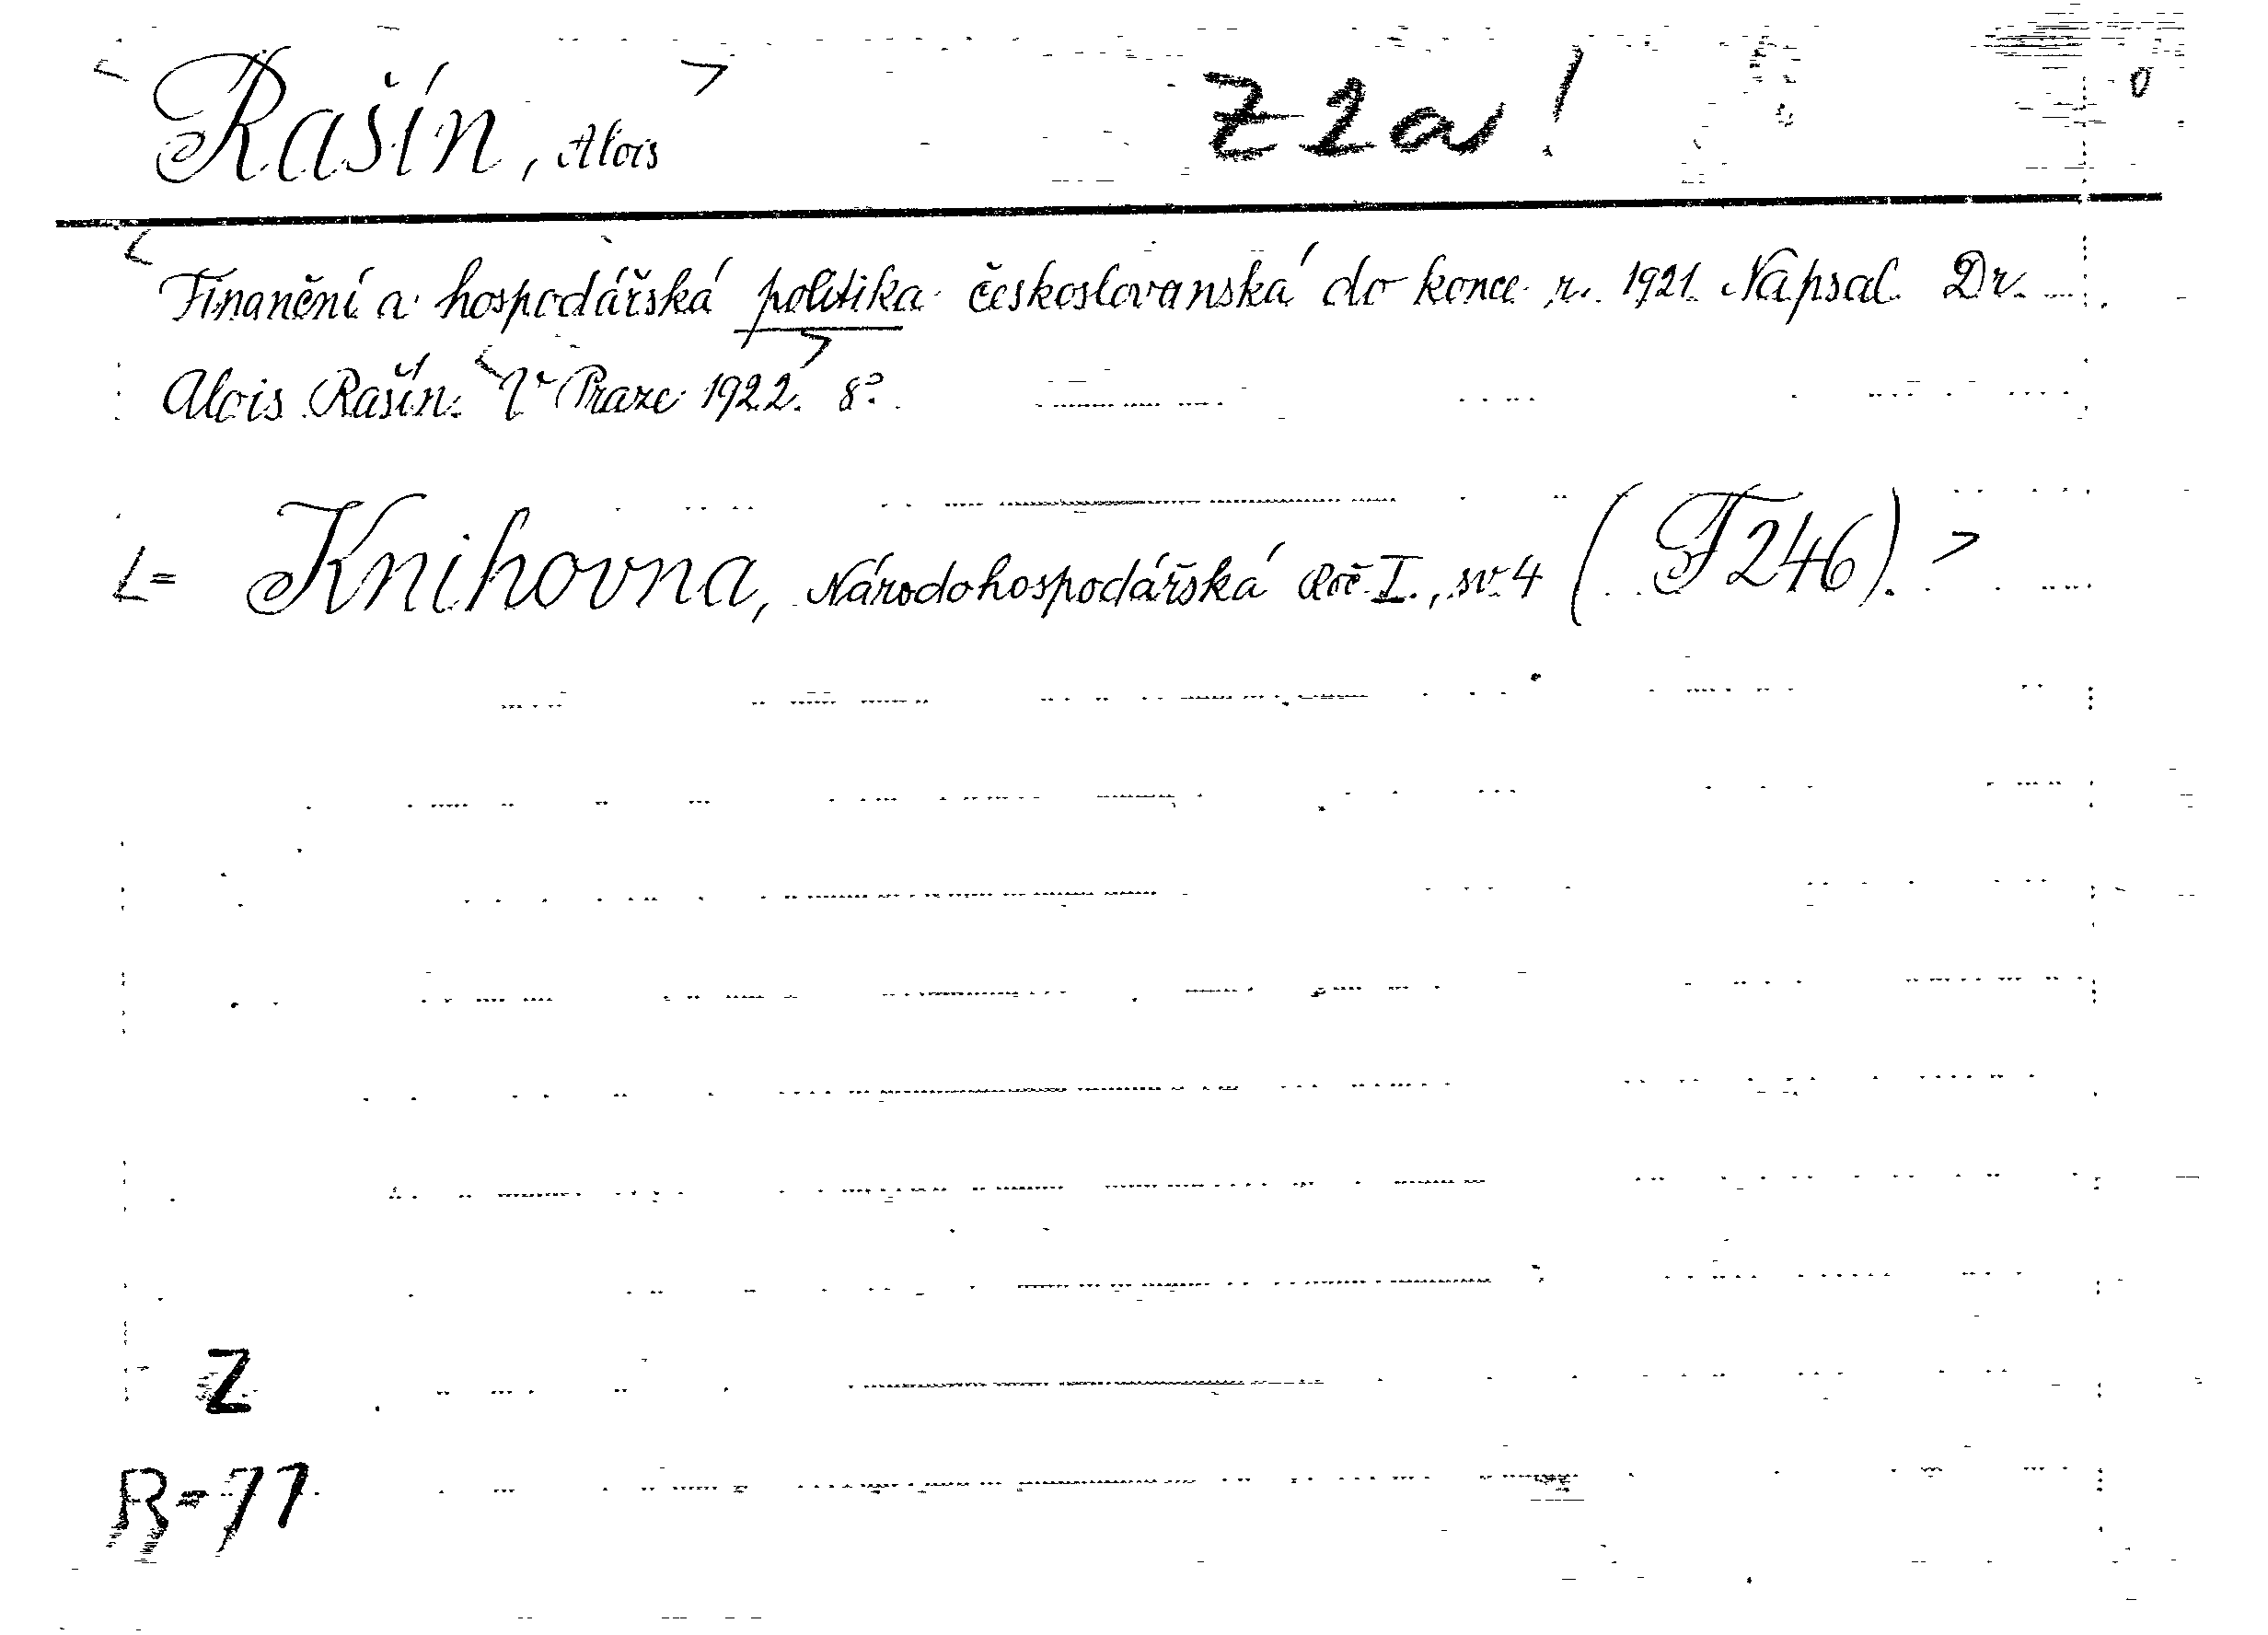 Rašín, Alois
Z 2a !
Finanční a hospodářská politika československá do konce r. 1921. Napsal Dr.
Alois Rašín. V Praze 1922. 8°.
= Knihovna, Národohospodářská Roč. I., sv. 4 (F 246).
Z
R=77